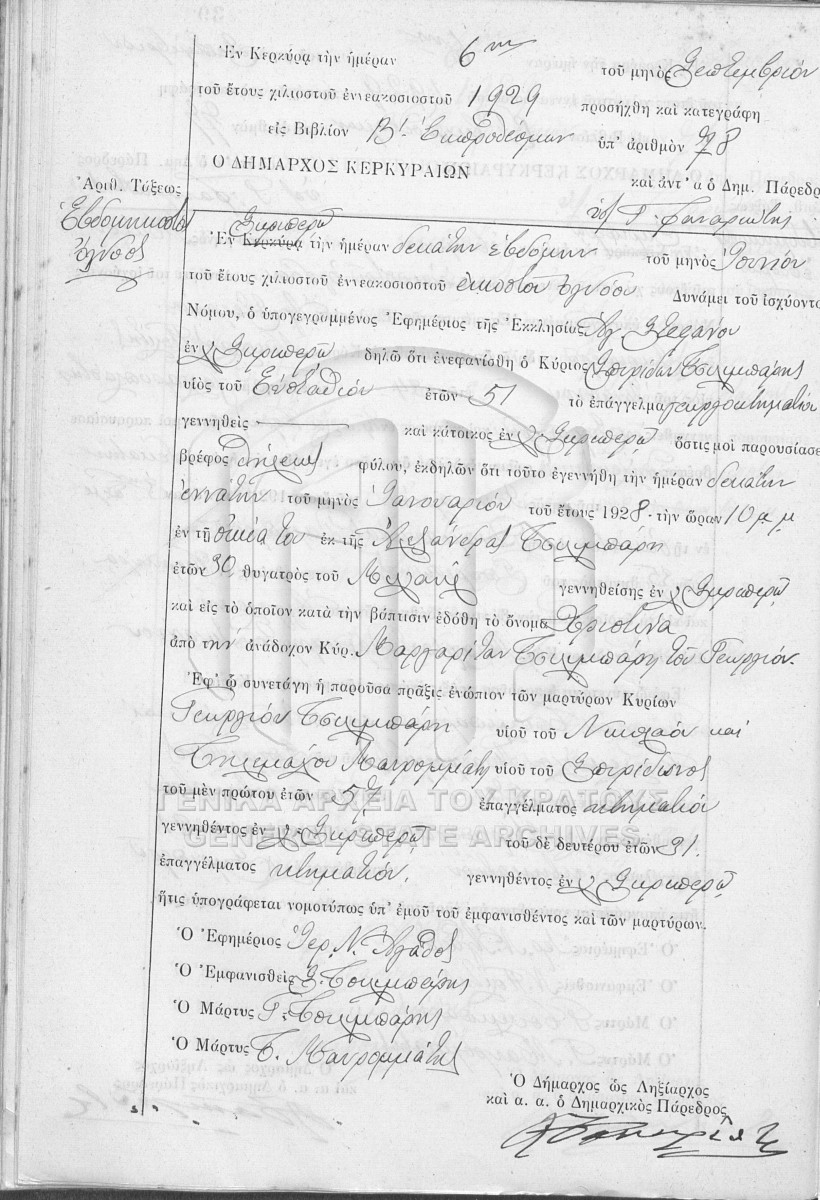 Ἐν Κερκύρᾳ τὴν ἡμέραν 6ην τοῦ μηνὸς Σεπτεμβρίου
τοῦ ἔτους χιλιοστοῦ ἐννεακοσιοστοῦ 1929 προσήχθη καὶ κατεγράφη
εἰς Βιβλίον Β΄. Ἐκπροθέσμων ὑπ' ἀριθμὸν 78
Ὁ ΔΗΜΑΡΧΟΣ ΚΕΡΚΥΡΑΙΩΝ
καὶ ἀντ' α ὁ Δημ. Πάρεδρος
Ἀριθ. Τάξεως
Ἑβδομηκοστὸς
ὄγδοος
Σκριπερῷ
Ἐν Κερκύρᾳ τὴν ἡμέραν δεκάτην ἑβδόμην τοῦ μηνὸς Ἰουνίου
τοῦ ἔτους χιλιοστοῦ ἐννεακοσιοστοῦ εἰκοστοῦ ὀγδόου Δυνάμει τοῦ ἰσχύοντο
Νόμου, ὁ ὑπογεγραμμένος Ἐφημέριος τῆς Ἐκκλησίας Ἁγ. Στεφάνου
ἐν Σκριπερῷ δηλῶ ὅτι ἐνεφανίσθη ὁ Κύριος Σπυρίδων Τσιλιμπάρης
υἱὸς τοῦ Εὐσταθίου ἐτῶν 51 τὸ ἐπάγγελμα γεωργοκτηματίου
γεννηθεὶς καὶ κάτοικος ἐν Σκριπερῷ ὅστις μοὶ παρουσίασε
βρέφος θήλεως φύλου, ἐκδηλῶν ὅτι τοῦτο ἐγεννήθη τὴν ἡμέραν δεκάτην
ἐννάτην τοῦ μηνὸς Ἰανουαρίου τοῦ ἔτους 1928 τὴν ὥραν 10 μ.μ
ἐν τῇ οἰκίᾳ του ἐκ τῆς Ἀλεξάνδρας Τσιλιμπάρη
ἐτῶν 30, θυγατρὸς τοῦ γεννηθείσης ἐν Σκριπερῷ
καὶ εἰς τὸ ὁποῖον κατὰ τὴν βάπτισιν ἐδόθη τὸ ὄνομα Χριστίνα
ἀπὸ τὴν ἀνάδοχον Κύρ. Μαργαρίταν Τσιλιμπάρη τοῦ Γεωργίου.
Ἐφ' ᾧ συνετάγη ἡ παροῦσα πρᾶξις ἐνώπιον τῶν μαρτύρων Κυρίων
Γεωργίου Τσιλιμπάρη υἱοῦ τοῦ Νικολάου καὶ
Τηλεμάχου Μαυρομμάτη υἱοῦ τοῦ Σπυρίδωνος
τοῦ μὲν πρώτου ἐτῶν 57 ἐπαγγέλματος κτηματίου
γεννηθέντος ἐν Σκριπερῷ τοῦ δὲ δευτέρου ἐτῶν 31.
ἐπαγγέλματος κτηματίου, γεννηθέντος ἐν Σκριπερῷ,
ἥτις ὑπογράφεται νομοτύπως ὑπ' ἐμοῦ τοῦ ἐμφανισθέντος καὶ τῶν μαρτύρων.
Ὁ Ἐφημέριος Ἱερ. Ν. Ἀγαθὸς
Ὁ Ἐμφανισθεὶς Σ. Τσιλιμπάρης
Ὁ Μάρτυς Γ. Τσιλιμπάρης
Ὁ Μάρτυς Τ. Μαυρομμάτης
Ὁ Δήμαρχος ὡς Ληξίαρχος
καὶ α. α. ὁ Δημαρχικὸς Πάρεδρος
ΓΕΝΙΚΑ ΑΡΧΕΙΑ ΤΟΥ ΚΡΑΤΟΥΣ
GENERAL STATE ARCHIVES